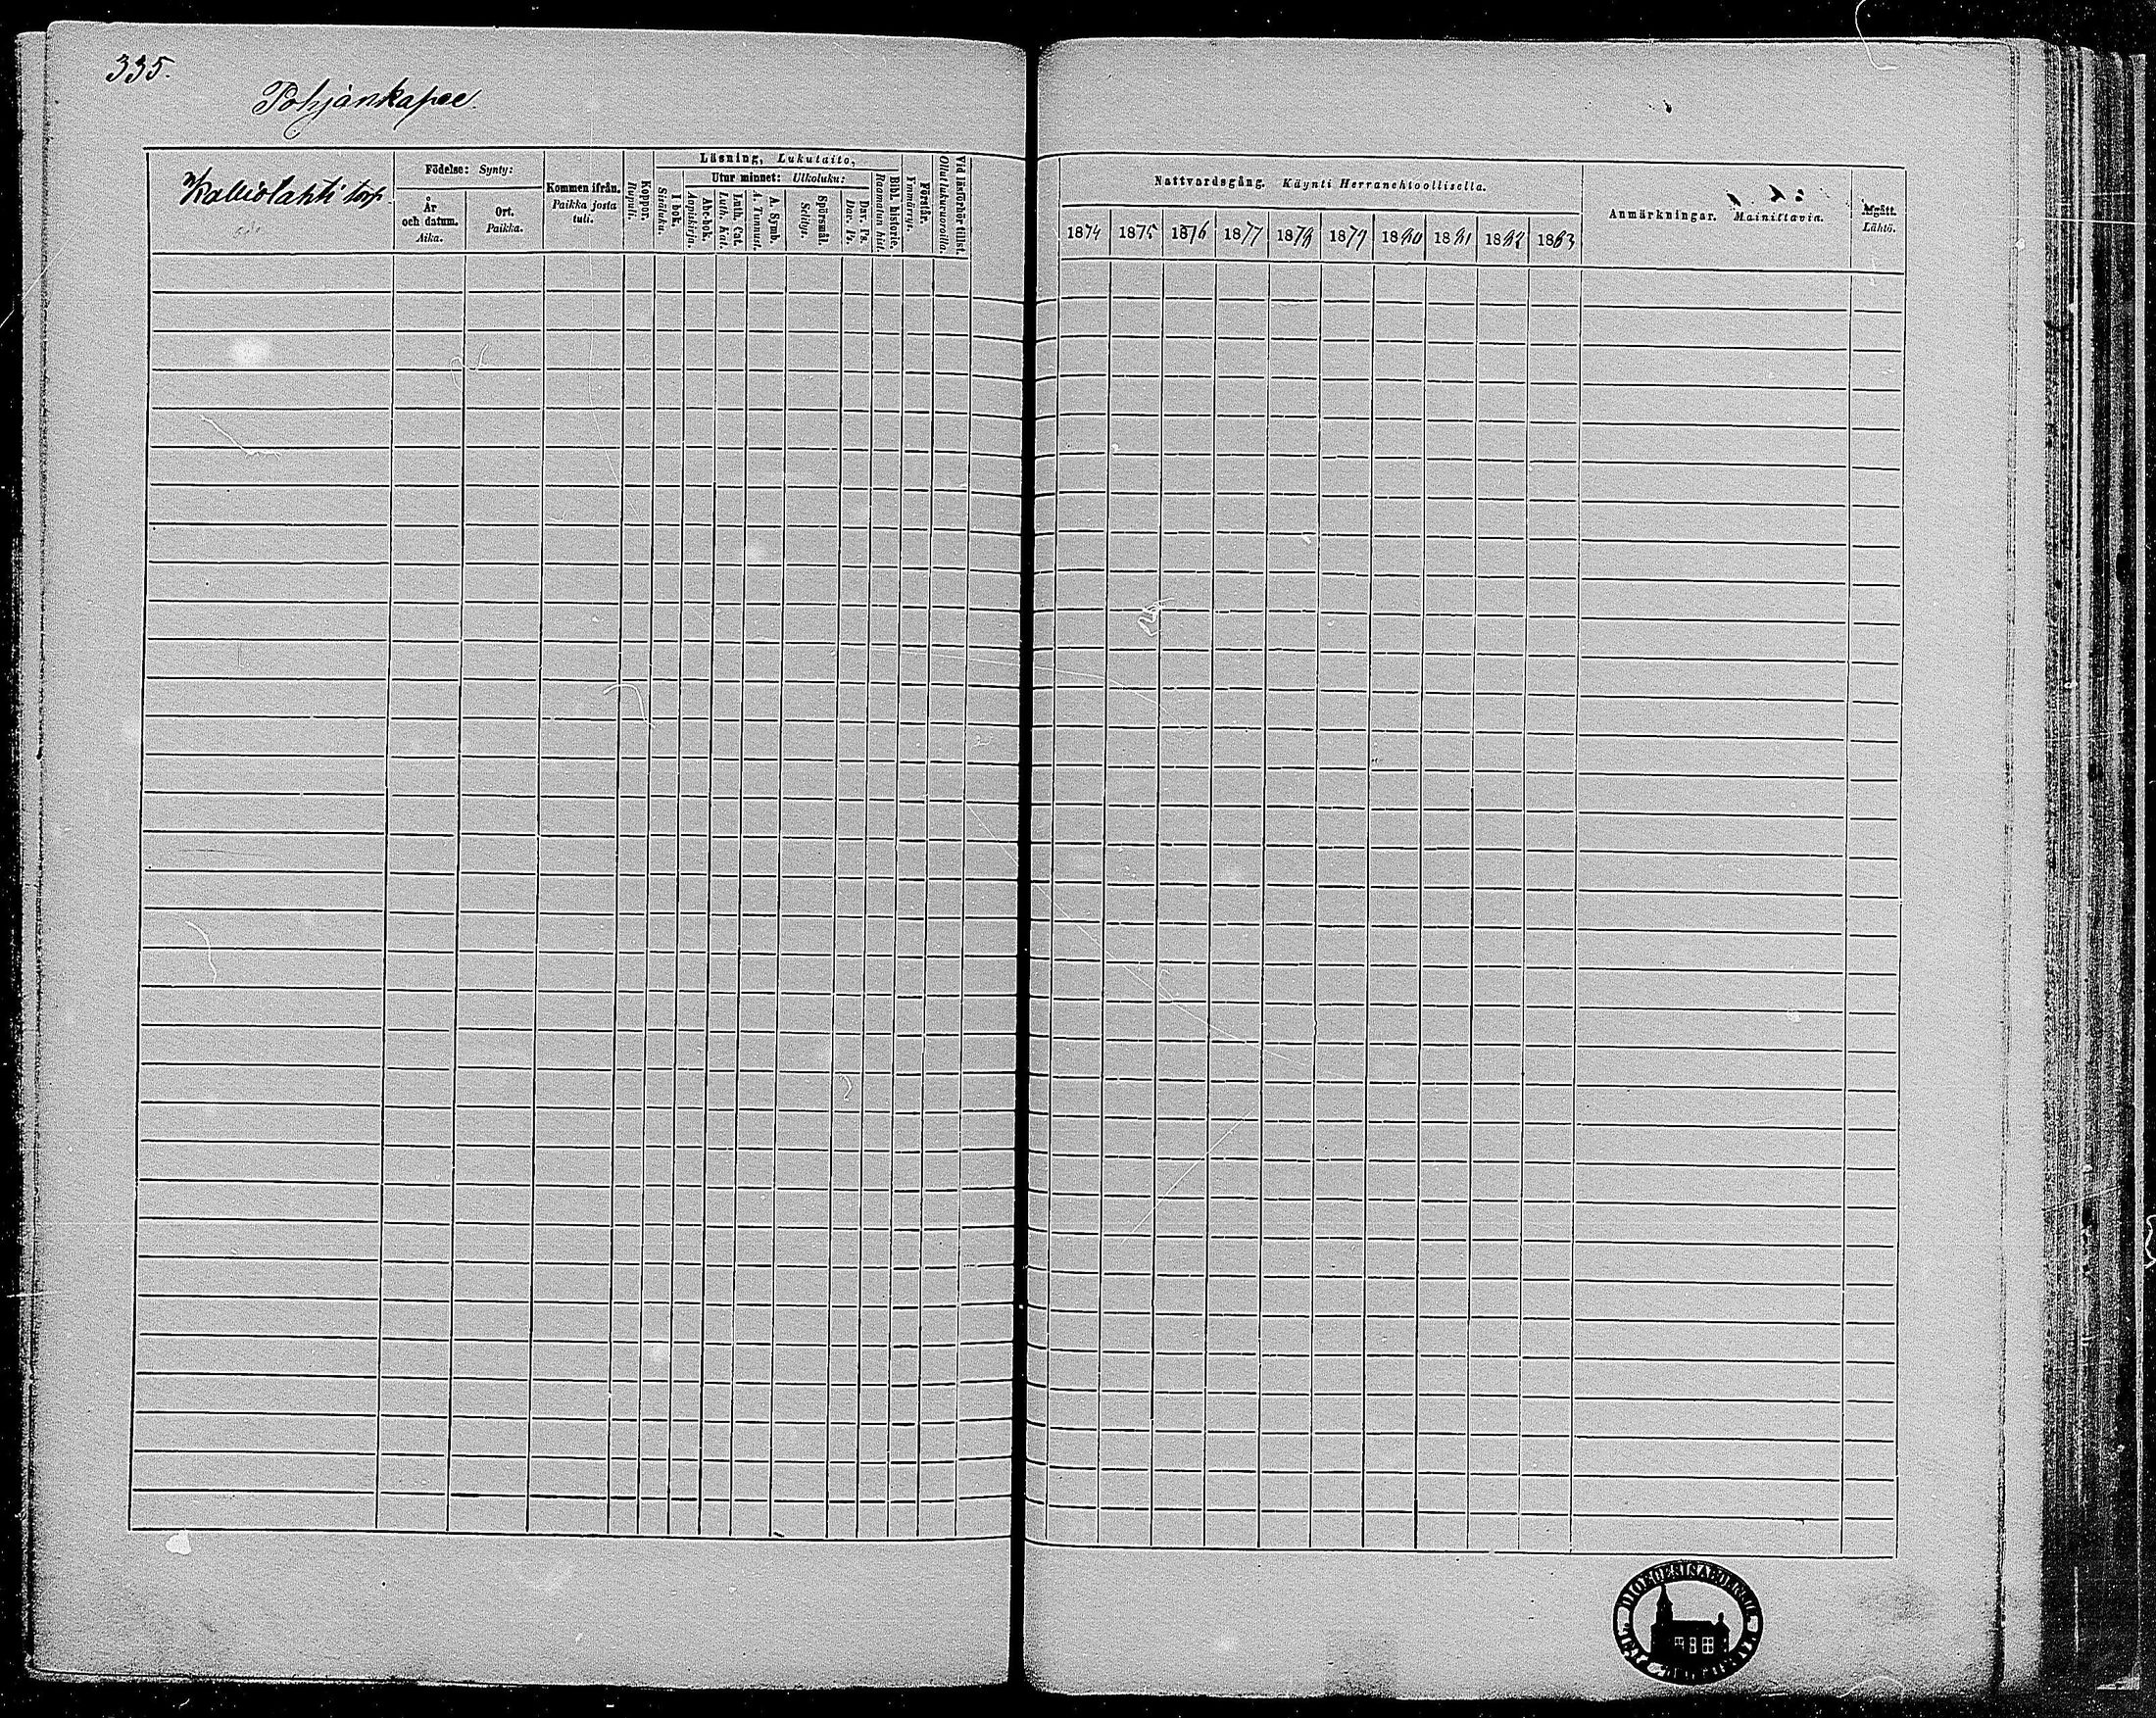 335.
Pohjankapee
Kalliolahti torp
Födelse: Synty:
År och datum. Aika.
Ort. Paikka.
Kommen ifrån. Paikka josta tuli.
Koppor. Rupuli.
Läsning, Lukutaito,
I bok. Sisäluku.
Utur minnet: Ulkoluku:
Abc-bok. Aapiskirja.
Luth. Cat. Luth. Kat.
A. Symb. A. Tunnust.
Spörsmål. Selitys.
Dav. Ps. Dav. Ps.
Bibl. historie. Raamatun hist.
Förstår. Ymmärrys.
Vid läsförhör tillst. Ollut lukuvuoroilla.
Nattvardsgång. Käynti Herranehtoollisella.
1874 1875 1876 1877 1878 1879 1880 1881 1882 1883
Anmärkningar. Mainittavia.
Afgått. Lähtö.